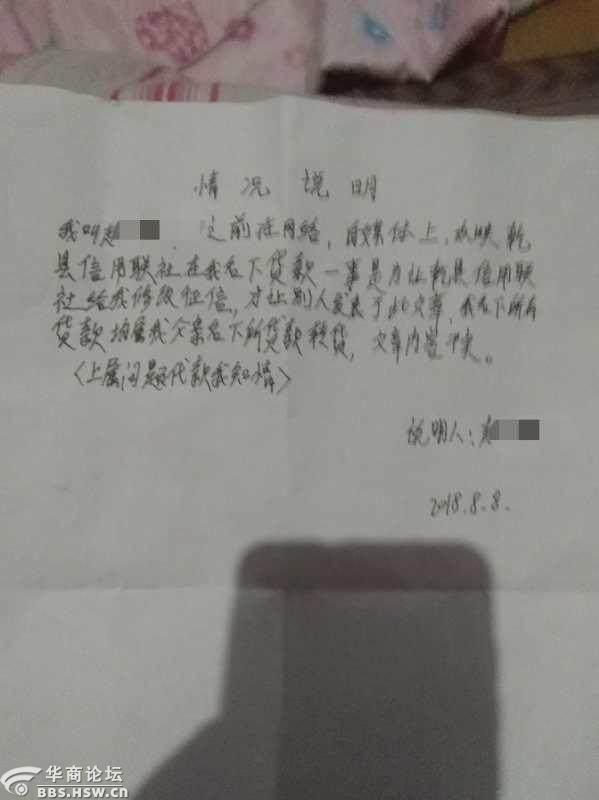 情况说明
我叫赵 之前在网络，自媒体上，反映乾
县信用联社在我名下贷款一事是为让乾县信用联
社给我修改征信，才让别人发表了此文章，我名下所有
贷款均属我父亲名下所贷款转贷，文章内容不实。
〈上属问题代款我知情〉
说明人：赵
2018.8.8.
华商论坛
BBS.HSW.CN